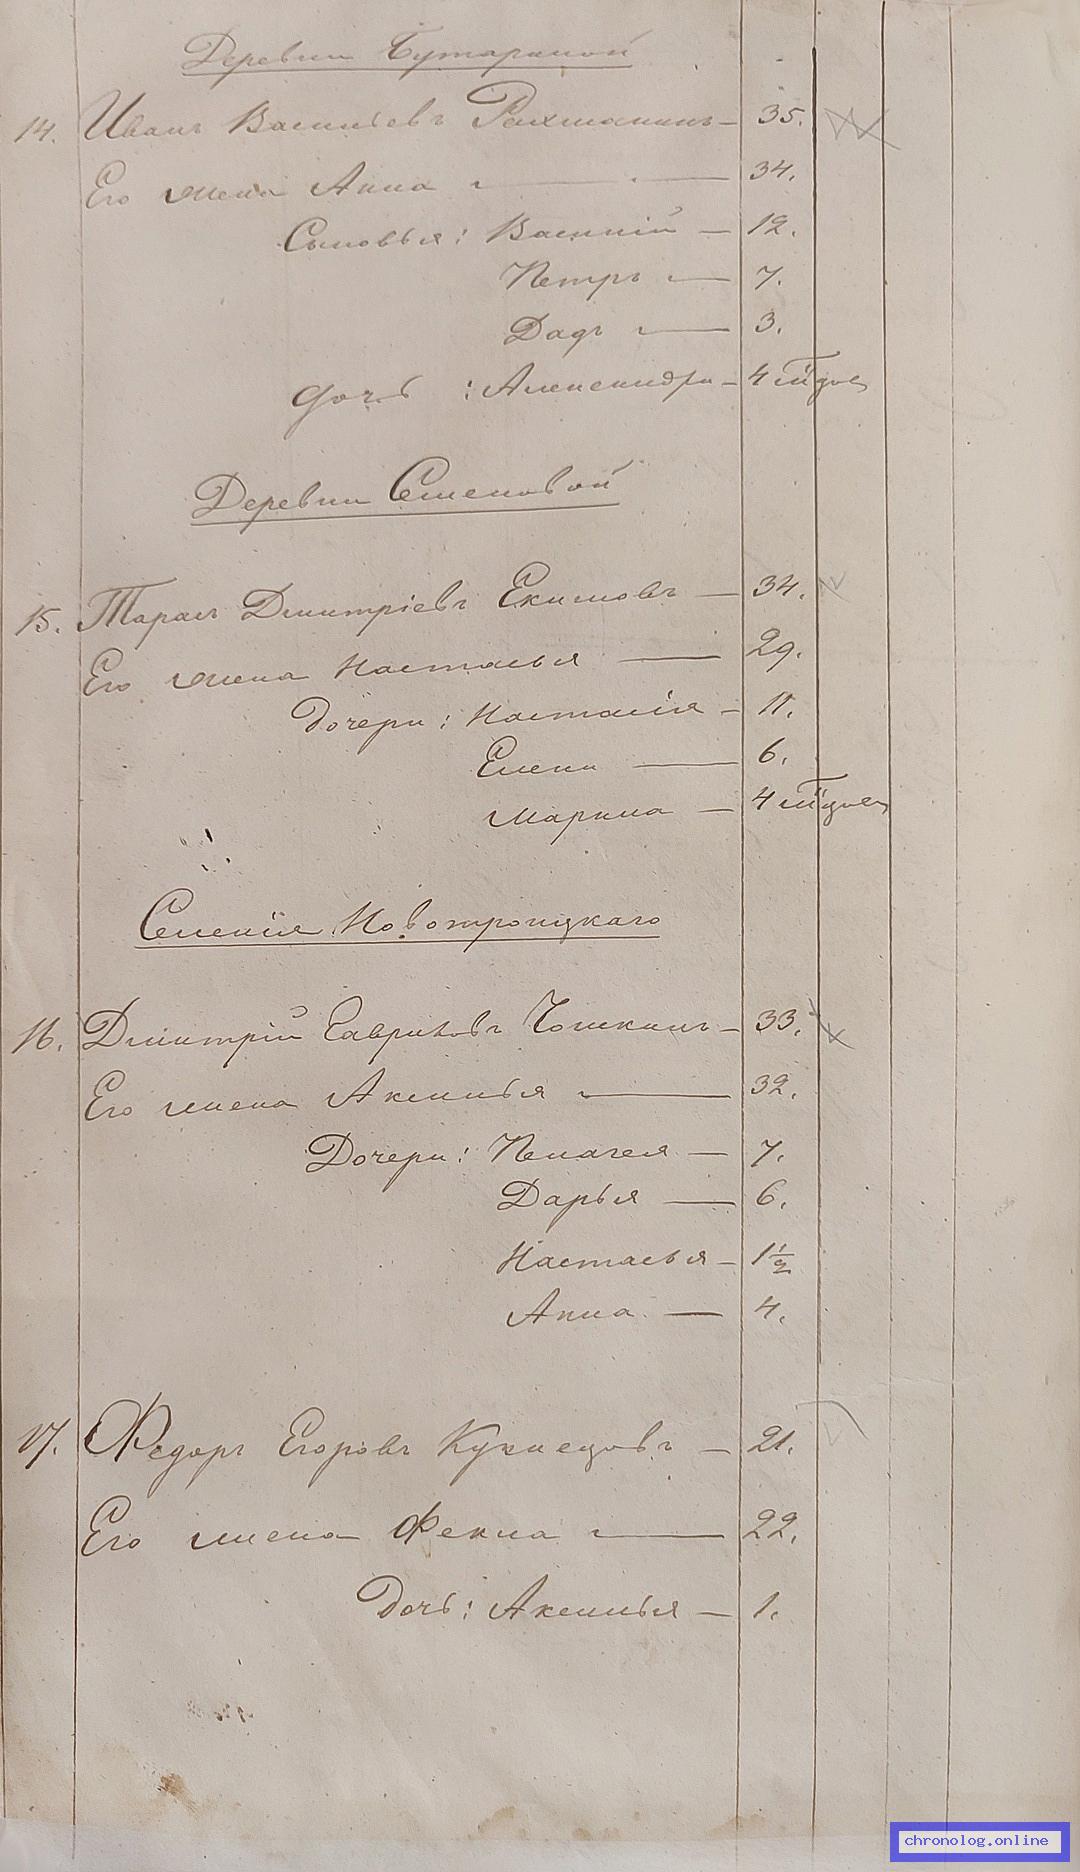 Деревни Бутариной
14. Иванъ Васильевъ Рахманинъ — 35.
Его жена Анна — 34.
Сыновья: Василій — 12.
Петръ — 7.
3.
дочь : Александра — 4
Деревни Семеновой
15. Тарасъ Дмитріевъ Екимовъ — 34.
Его жена Настасья — 29.
Дочери: Настасія — 11.
Елена — 6.
Марина — 4
Селенія Новотроицкаго
16. Дмитрій Гавриловъ — 33.
Его жена Аксинья — 32.
Дочери: Пелагея — 7.
Дарья — 6.
Настасья — 1 1/2
Анна — 4.
17. Федоръ Егоровъ Кузнецовъ — 21.
Его жена Фекла — 22.
Дочь: Аксинья — 1.
chronolog.online